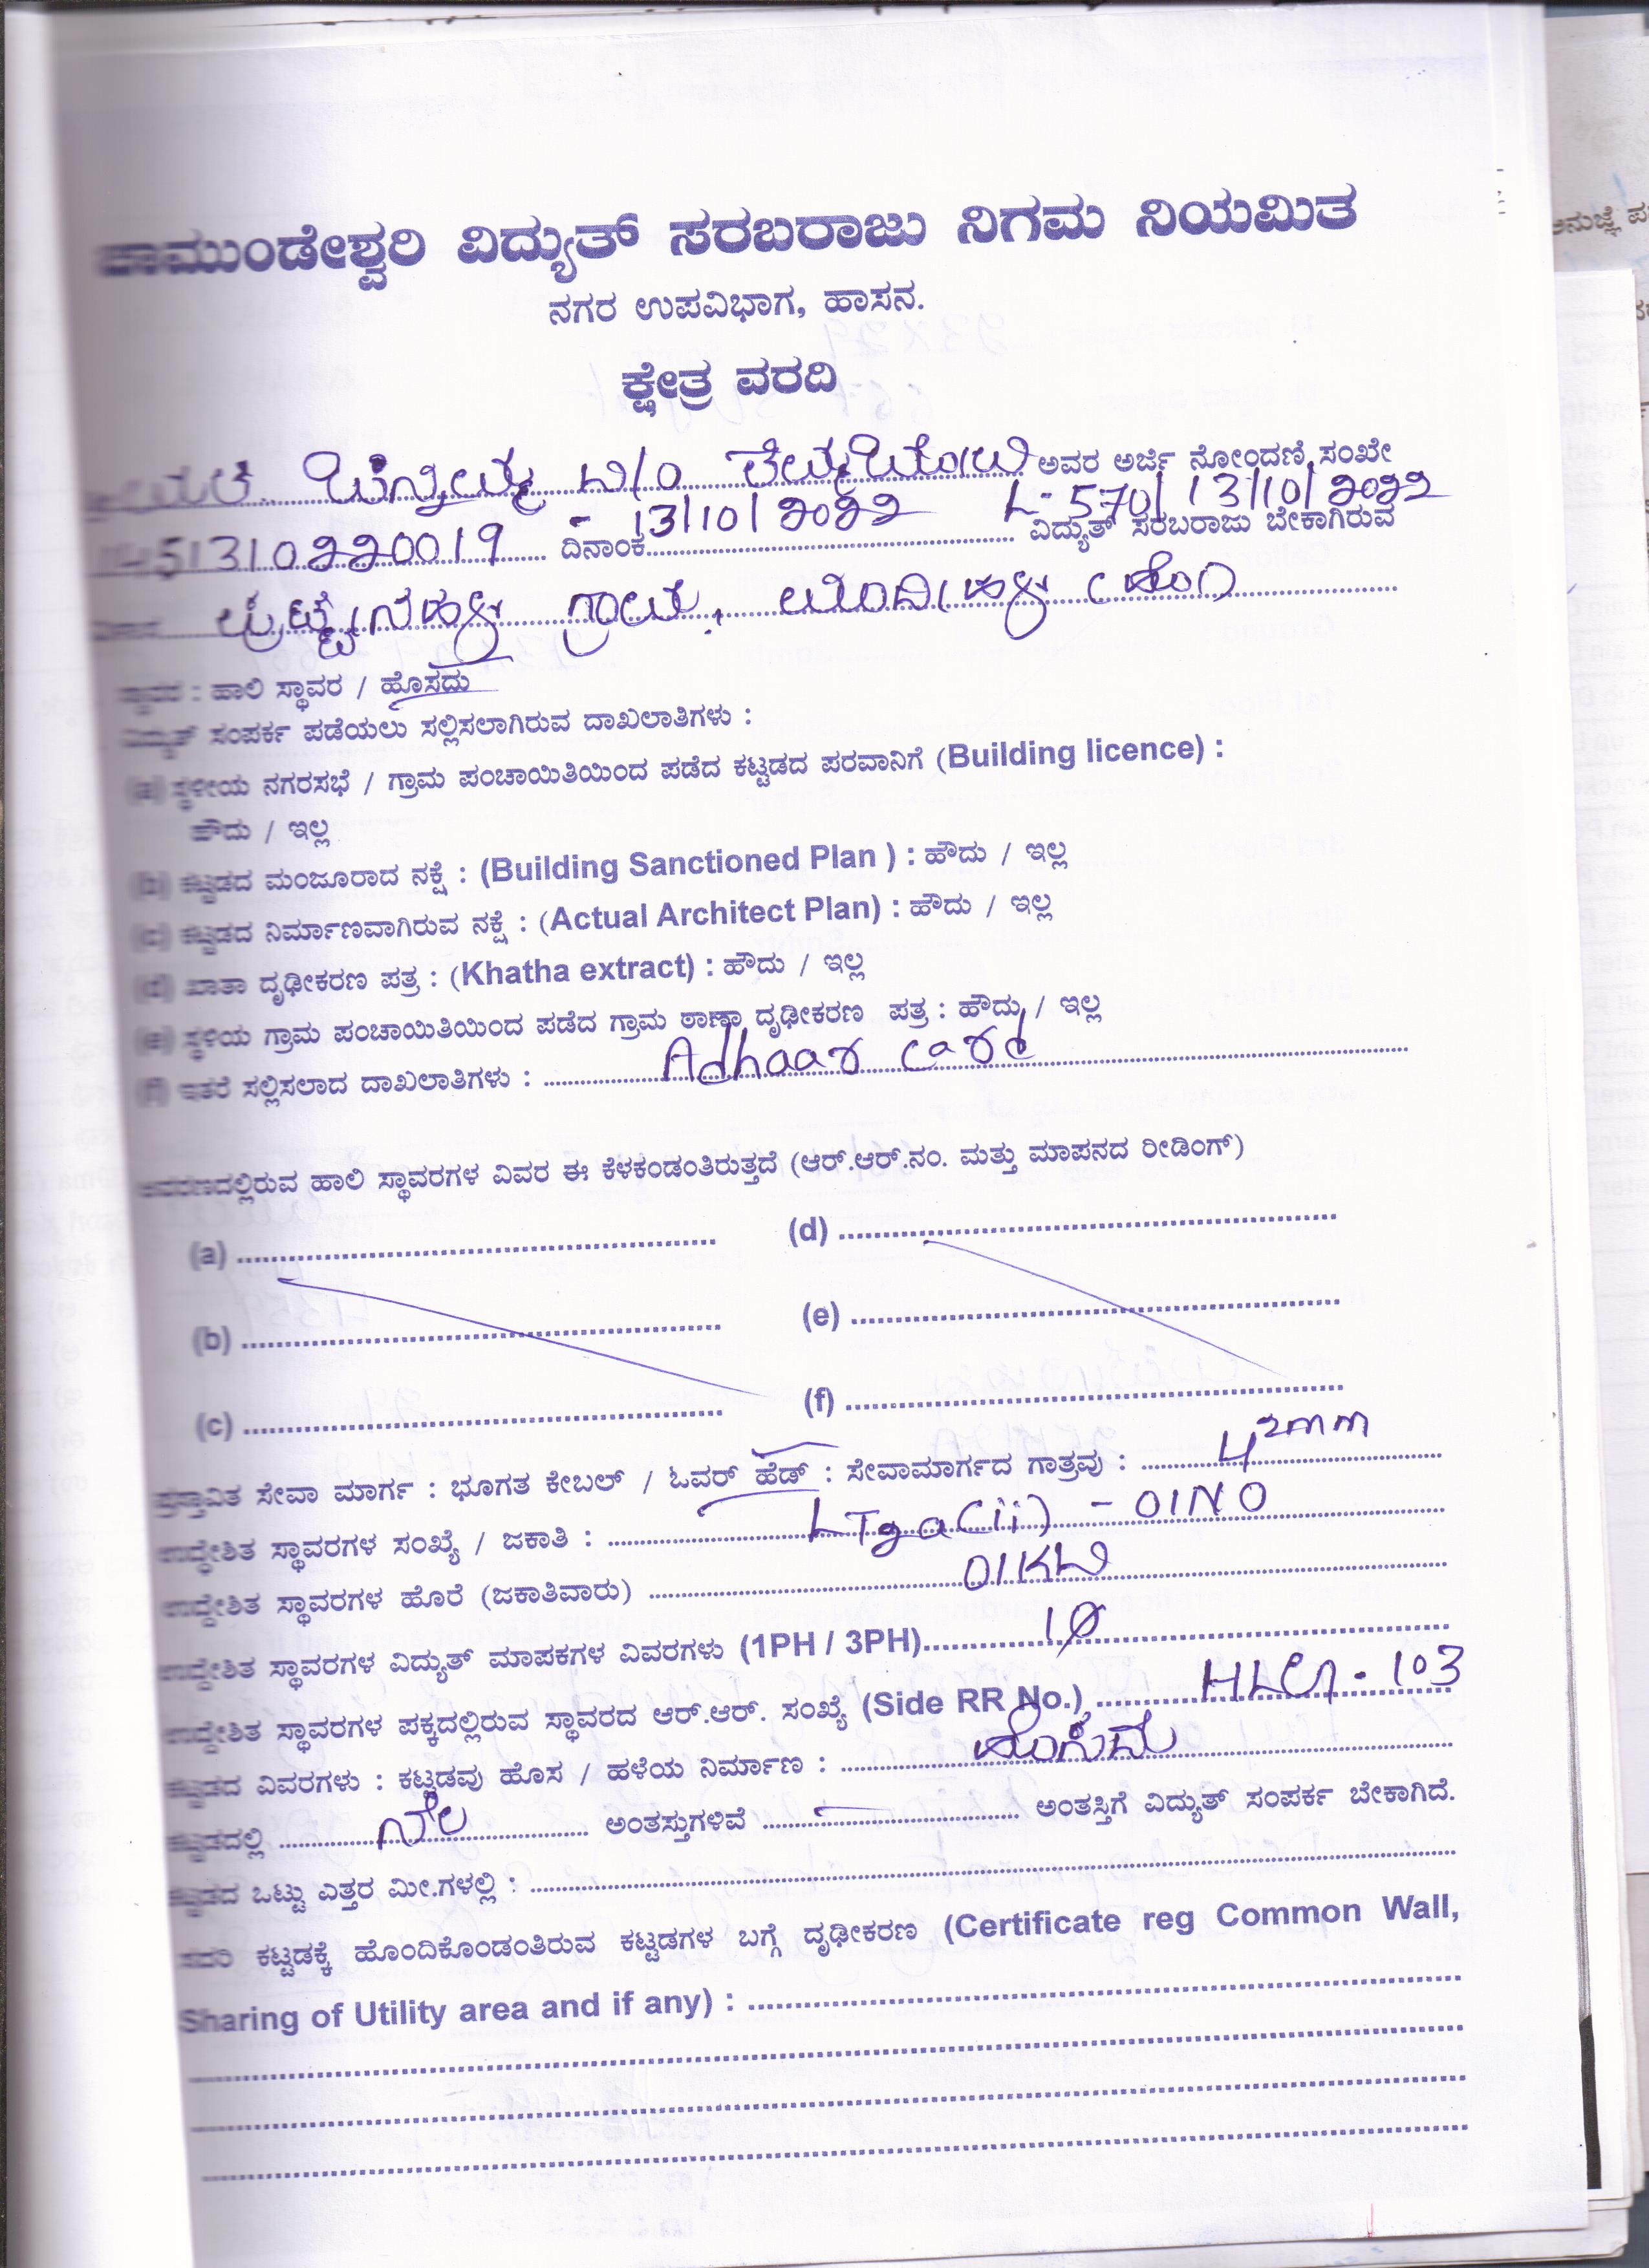 ಚಾಮುಂಡೇಶ್ವರಿ ವಿದ್ಯುತ್ ಸರಬರಾಜು ನಿಗಮ ನಿಯಮಿತ
ನಗರ ಉಪವಿಭಾಗ, ಹಾಸನ.
ಕ್ಷೇತ್ರ ವರದಿ
ಅವರ ಅರ್ಜಿ ನೋಂದಣಿ ಸಂಖೇ
L-570/13/10/2022
451310220019 ದಿನಾಂಕ - 13/10/2022 ವಿದ್ಯುತ್ ಸರಬರಾಜು ಬೇಕಾಗಿರುವ
ಗ್ರಾಮ,
ಸ್ಥಾವರ : ಹಾಲಿ ಸ್ಥಾವರ / ಹೊಸದು
ವಿದ್ಯುತ್ ಸಂಪರ್ಕ ಪಡೆಯಲು ಸಲ್ಲಿಸಲಾಗಿರುವ ದಾಖಲಾತಿಗಳು :
(a) ಸ್ಥಳೀಯ ನಗರಸಭೆ / ಗ್ರಾಮ ಪಂಚಾಯಿತಿಯಿಂದ ಪಡೆದ ಕಟ್ಟಡದ ಪರವಾನಿಗೆ (Building licence) :
ಹೌದು / ಇಲ್ಲ
(b) ಕಟ್ಟಡದ ಮಂಜೂರಾದ ನಕ್ಷೆ : (Building Sanctioned Plan ) : ಹೌದು / ಇಲ್ಲ
(c) ಕಟ್ಟಡದ ನಿರ್ಮಾಣವಾಗಿರುವ ನಕ್ಷೆ : (Actual Architect Plan) : ಹೌದು / ಇಲ್ಲ
(d) ಖಾತಾ ದೃಢೀಕರಣ ಪತ್ರ : (Khatha extract) : ಹೌದು / ಇಲ್ಲ
(e) ಸ್ಥಳಿಯ ಗ್ರಾಮ ಪಂಚಾಯಿತಿಯಿಂದ ಪಡೆದ ಗ್ರಾಮ ಠಾಣಾ ದೃಢೀಕರಣ ಪತ್ರ : ಹೌದು / ಇಲ್ಲ
(f) ಇತರೆ ಸಲ್ಲಿಸಲಾದ ದಾಖಲಾತಿಗಳು : Adhaar card
ಆವರಣದಲ್ಲಿರುವ ಹಾಲಿ ಸ್ಥಾವರಗಳ ವಿವರ ಈ ಕೆಳಕಂಡಂತಿರುತ್ತದೆ (ಆರ್.ಆರ್.ನಂ. ಮತ್ತು ಮಾಪನದ ರೀಡಿಂಗ್)
(a) (d)
(b) (e)
(c) (f)
ಪ್ರಸ್ತಾವಿತ ಸೇವಾ ಮಾರ್ಗ : ಭೂಗತ ಕೇಬಲ್ / ಓವರ್ ಹೆಡ್ : ಸೇವಾಮಾರ್ಗದ ಗಾತ್ರವು : 4 2mm
ಉದ್ದೇಶಿತ ಸ್ಥಾವರಗಳ ಸಂಖ್ಯೆ / ಜಕಾತಿ : LT2a(ii) - 01NO
ಉದ್ದೇಶಿತ ಸ್ಥಾವರಗಳ ಹೊರೆ (ಜಕಾತಿವಾರು) 01KW
ಉದ್ದೇಶಿತ ಸ್ಥಾವರಗಳ ವಿದ್ಯುತ್ ಮಾಪಕಗಳ ವಿವರಗಳು (1PH / 3PH) 1Ø
ಉದ್ದೇಶಿತ ಸ್ಥಾವರಗಳ ಪಕ್ಕದಲ್ಲಿರುವ ಸ್ಥಾವರದ ಆರ್.ಆರ್. ಸಂಖ್ಯೆ (Side RR No.) - 103
ಕಟ್ಟಡದ ವಿವರಗಳು : ಕಟ್ಟಡವು ಹೊಸ / ಹಳೆಯ ನಿರ್ಮಾಣ : ಹೊಸದು
ಕಟ್ಟಡದಲ್ಲಿ ನೆಲ ಅಂತಸ್ತುಗಳಿವೆ ಅಂತಸ್ತಿಗೆ ವಿದ್ಯುತ್ ಸಂಪರ್ಕ ಬೇಕಾಗಿದೆ.
ಕಟ್ಟಡದ ಒಟ್ಟು ಎತ್ತರ ಮೀ.ಗಳಲ್ಲಿ :
ಸದರಿ ಕಟ್ಟಡಕ್ಕೆ ಹೊಂದಿಕೊಂಡಂತಿರುವ ಕಟ್ಟಡಗಳ ಬಗ್ಗೆ ದೃಢೀಕರಣ (Certificate reg Common Wall,
Sharing of Utility area and if any) :